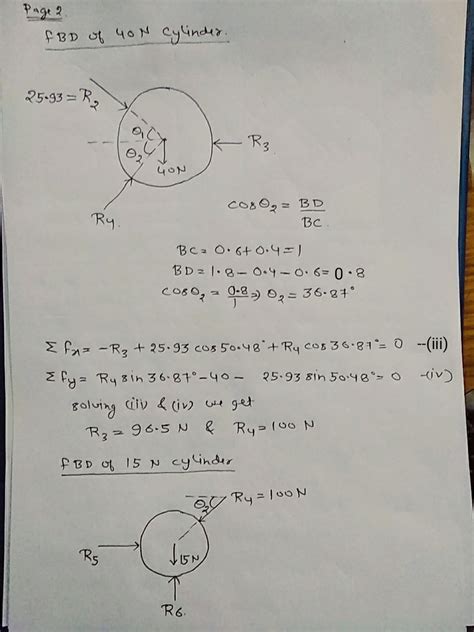 Page 2.
FBD of 40N Cylinder.
25.93 = R2
θ1
θ2
40N
R3
R4.
cosθ2 = BD/BC
BC = 0.6+0.4=1
BD = 1.8-0.4-0.6=0.8
cosθ2 = 0.8/1 ⇒ θ2 = 36.87°
Σfx= -R3 + 25.93 cos50.48°+R4 cos36.87°= 0 --(iii)
Σfy= R4 sin36.87°-40- 25.93 sin50.48°= 0 -(iv)
solving (iii) & (iv) we get
R3 = 96.5 N & R4=100 N
FBD of 15 N cylinder
θ2
R4=100N
R5
15N
R6.